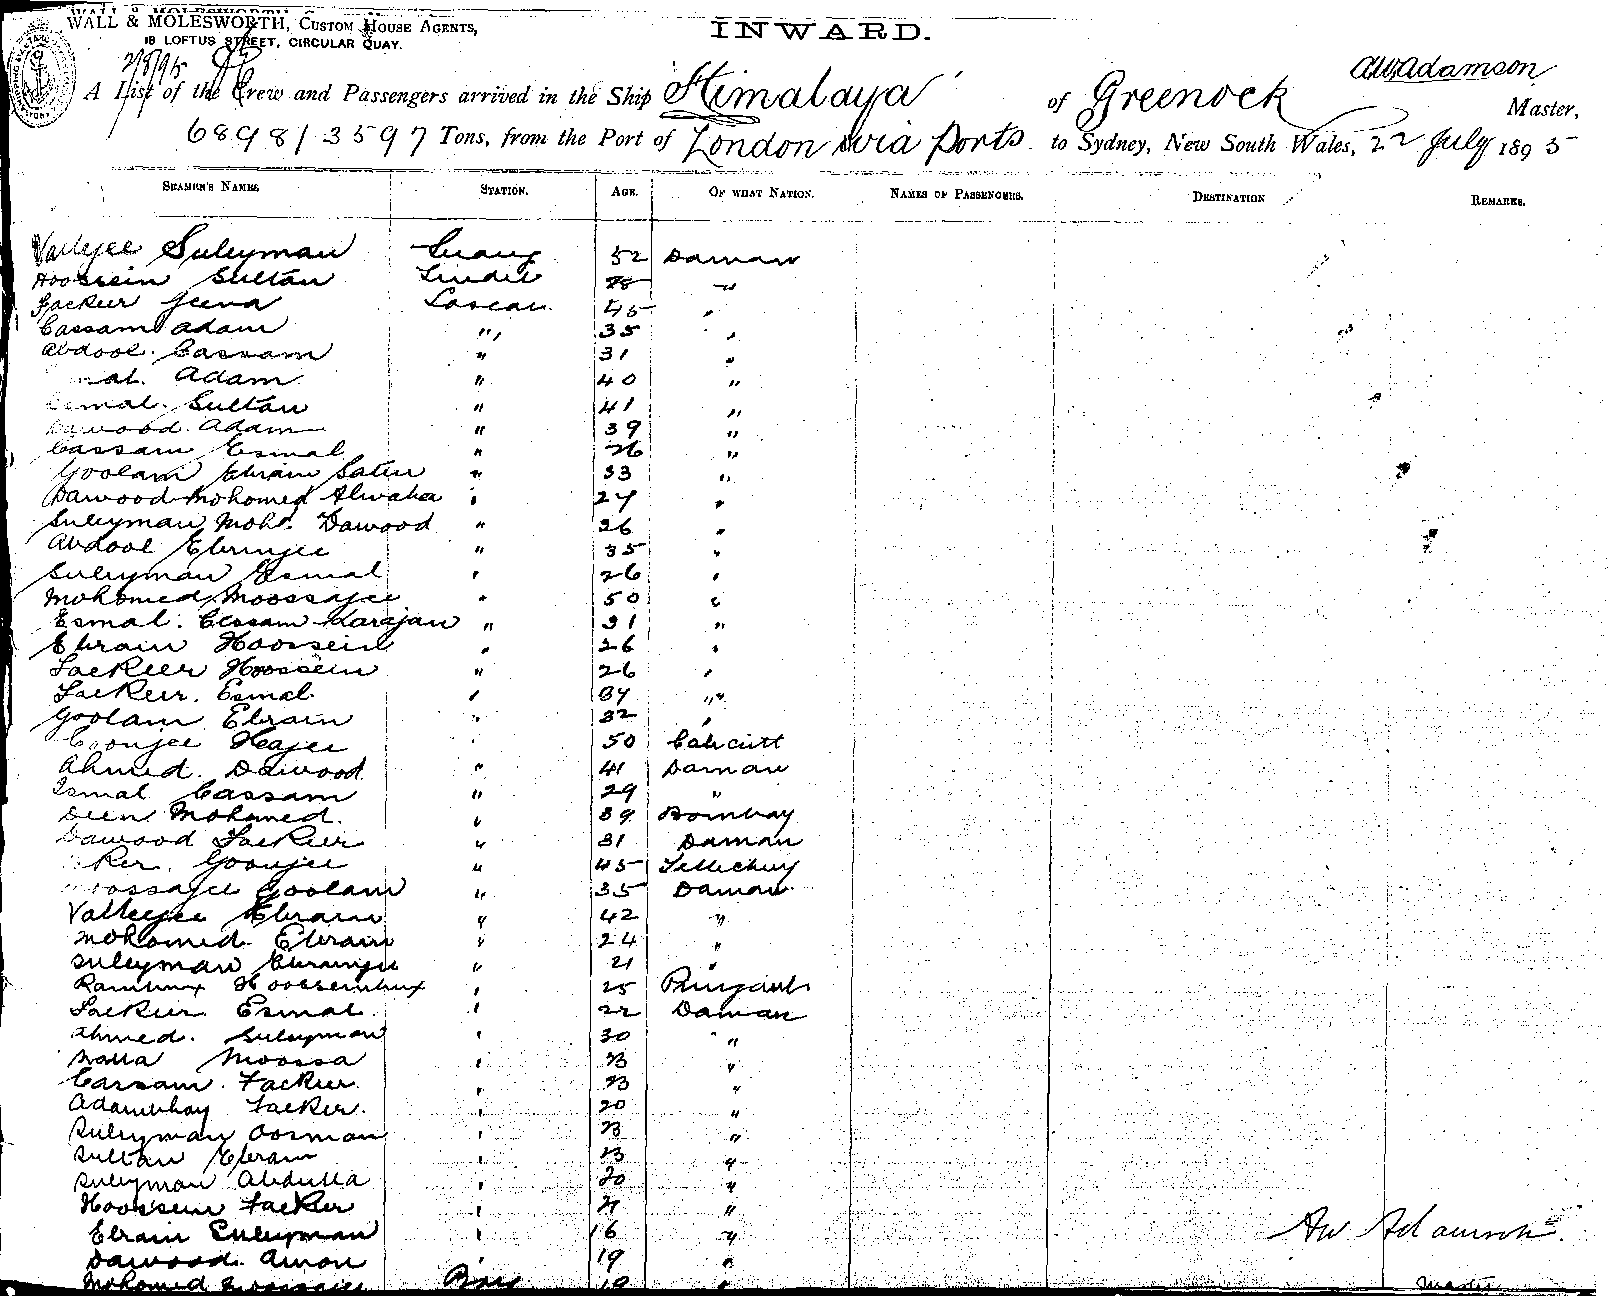 WALL & MOLESWORTH, CUSTOM HOUSE AGENTS,
18 LOFTUS STREET, CIRCULAR QUAY.
INWARD.
2/8/95
AW Adamson
A List of the Crew and Passengers arrived in the Ship "Himalaya" of Greenock Master,
6898/3597 Tons, from the Port of London via Ports to Sydney, New South Wales, 22 July 1895
SEAMEN'S NAMES STATION. AGE. OF WHAT NATION. NAMES OF PASSENGERS. DESTINATION REMARKS.
Vallejee Suleyman 52 Daman
Hoossein Sultan Tindel 28 "
Fackeer Jeeva Lascar 45 "
Cassam Adam " 35 "
Abdool Cassam " 31 "
Adam " 40 "
Esmal Sultan " 41 "
Dawood Adam " 39 "
Cassam Esmal " 26 "
Goolam Ebraim " 33 "
Dawood Mohomed " 24 "
Suleyman Mohd. Dawood " 26 "
Abdool Ebrimjee " 35 "
Suleyman Esmal " 26 "
Mohomed Moossajee " 50 "
Esmal Cassam Karajan " 31 "
Ebraim Hoossein " 26 "
Fackeer Hoossein " 26 "
Fackeer Esmal " 34 "
Goolam Ebraim " 32 "
Goonjee Heajee " 50 Calicutt
Ahmed Dawood " 41 Daman
Esmal Cassam " 29 "
Deen Mohomed " 39 Bombay
Dawood Fackeer " 31 Daman
Goonjee " 45 Tellichery
Moossajee Goolam " 35 Daman
Vallejee Ebraim " 42 "
Mohomed Ebraim " 24 "
Suleyman Ebramjee " 21 "
Rambux Hoosseinbux " 25 Punjaub
Fackeer Esmal " 22 Daman
Ahmed Suleyman " 30 "
Nalla Moossa " 23 "
Cassam Fackeer " 23 "
Adambhay Fackeer " 20 "
Suleyman Oosman " 23 "
Sultan Ebraim " 23 "
Suleyman Abdulla " 20 "
Hoossein Fackeer " 21 "
Ebraim Suleyman " 16 "
Dawood Amon " 19 "
Mohomed Moossajee Boy 19 "
AW Adamson
Master